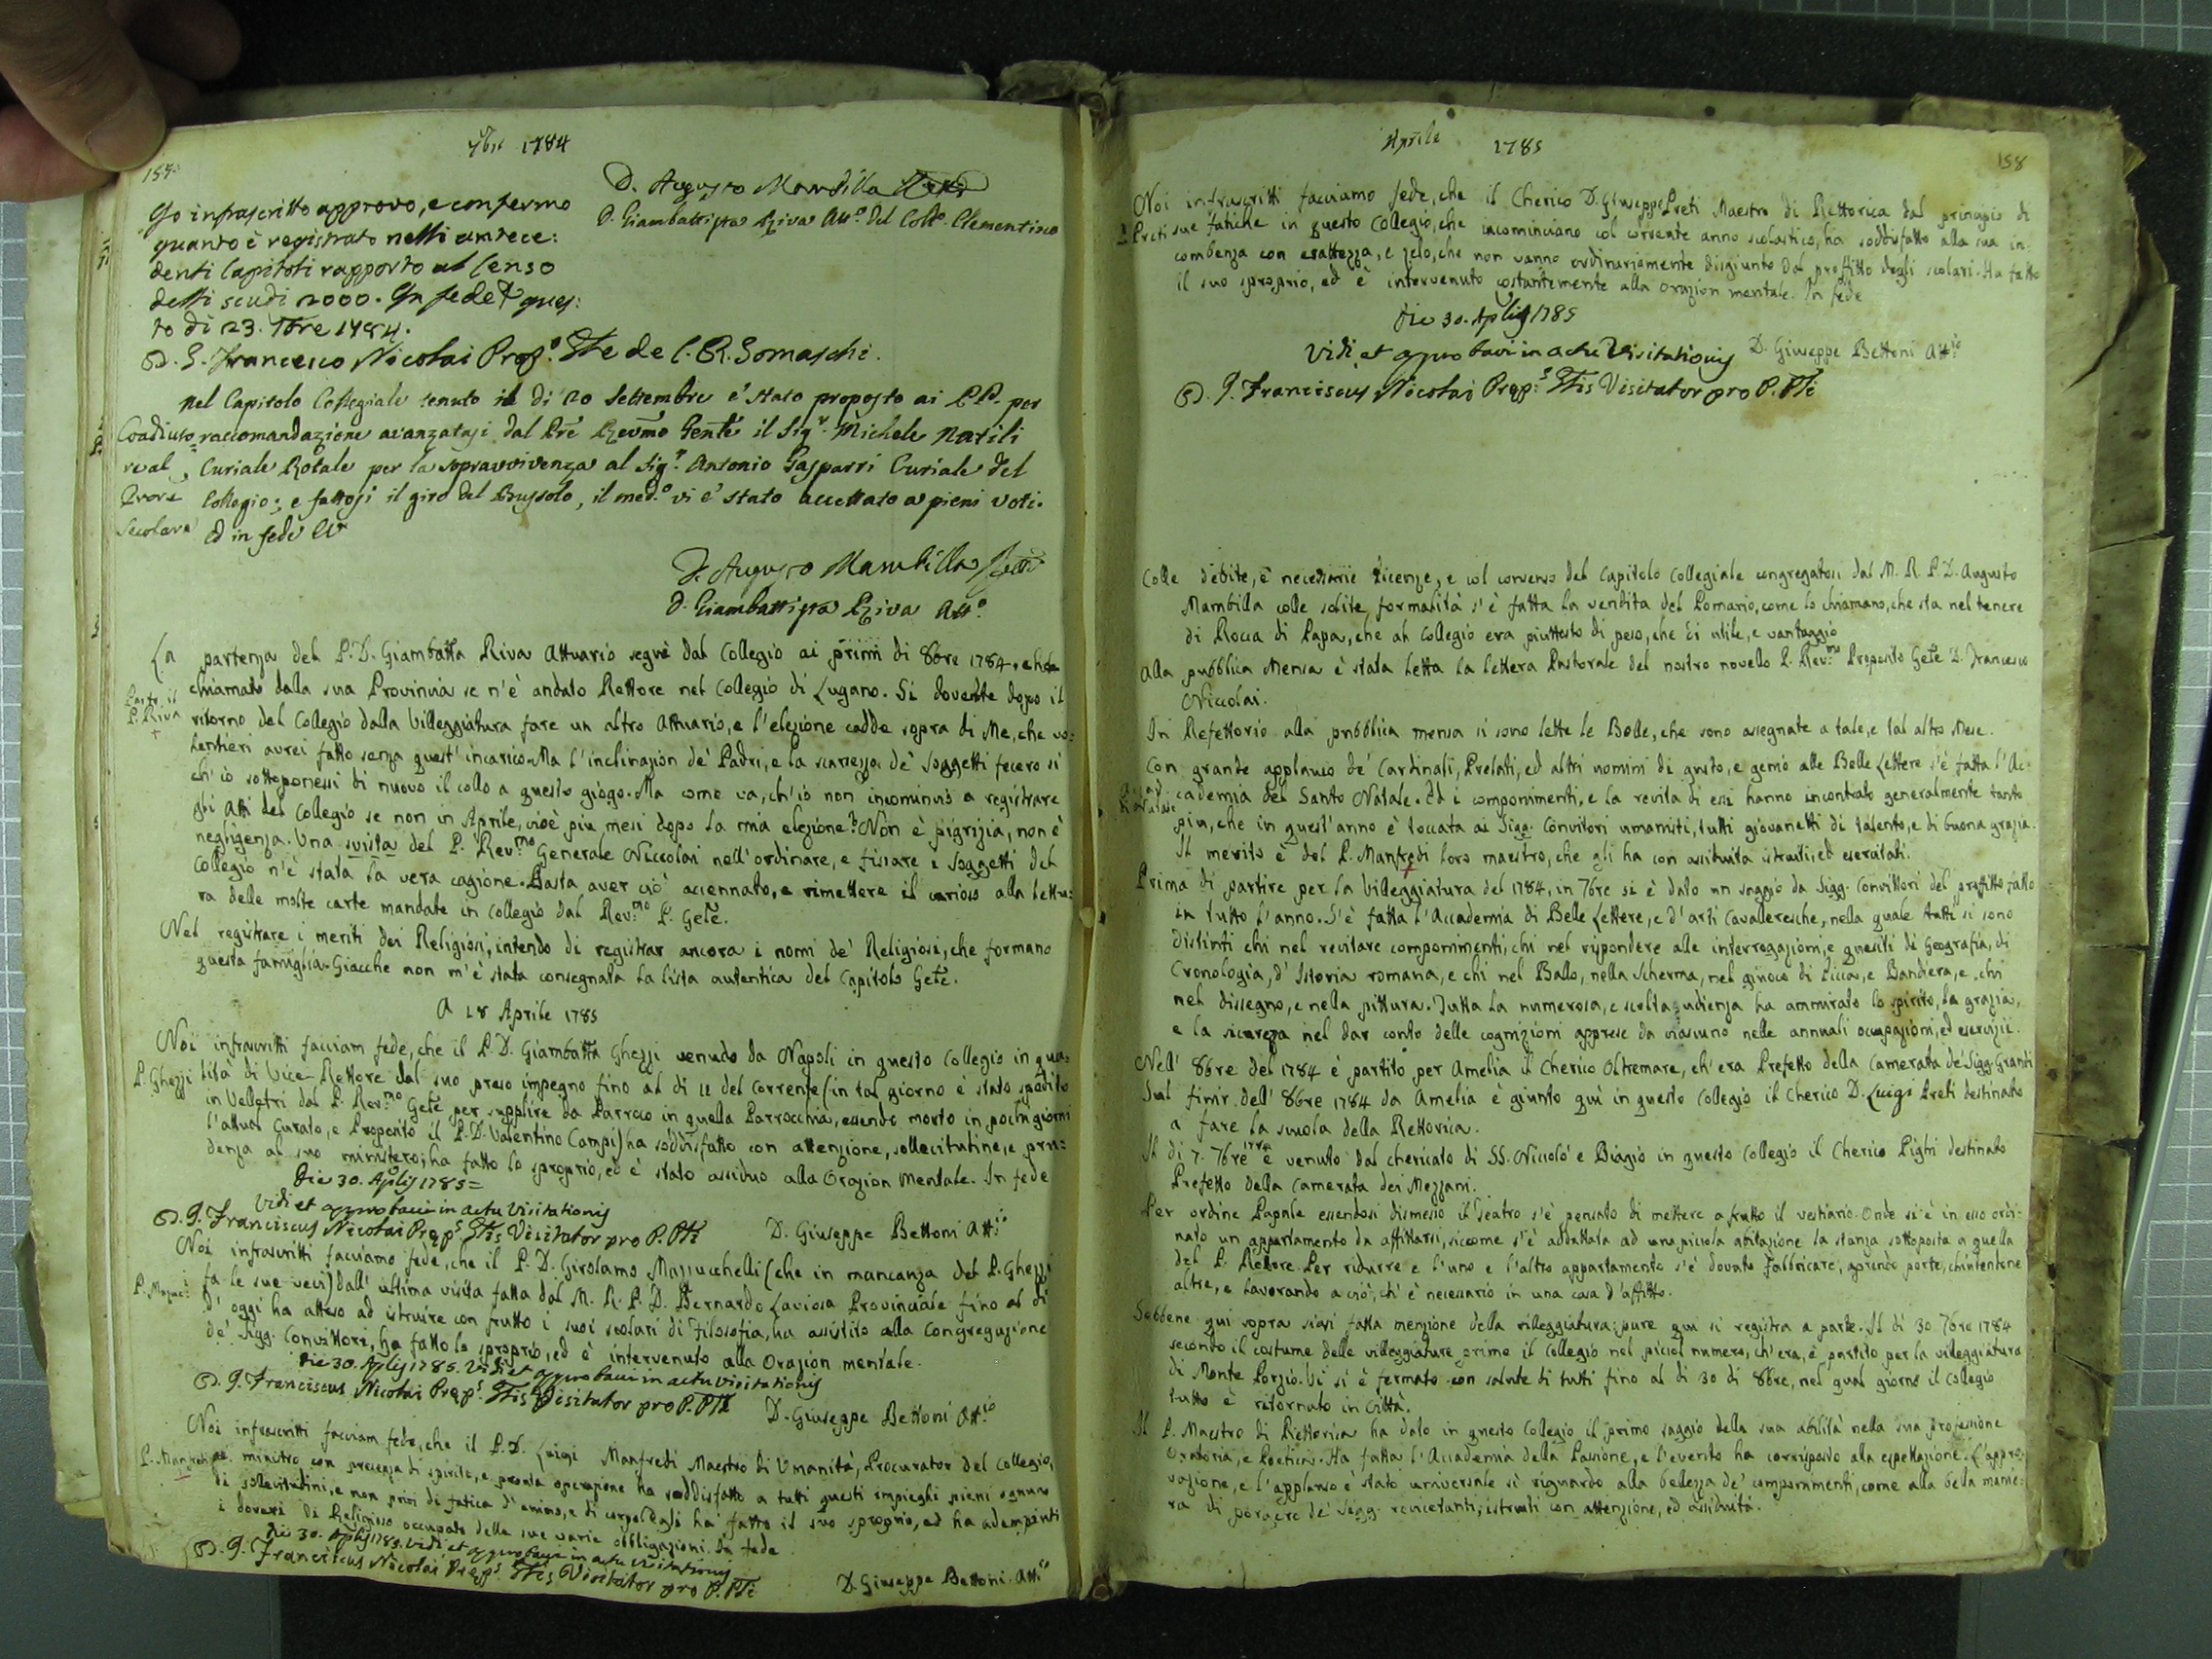 7bre 1784
157
D. Augusto Mambilla Rettē
D. Giambattista Riva Att.º del Coll.º Clementino
Io infrascritto approvo, e confermo
quanto è registrato nelli antece:
denti Capitoli rapporto al Censo
delli scudi 2000. In fede & ques:
to dì 23. 7bre 1784.
D. G. Francesco Nicolai Prep.º Gle de C. R. Somaschi.
Nel Capitolo Collegiale tenuto il dì 20 Settembre è stato proposto ai PP. per
raccomandazione avanzatasi dal Pre Revmo Genle il Sig.r Michele Natili
Curiale Rotale per la sopravvivenza al Sig.r Antonio Gasparri Curiale del
Collegio; e fattosi il giro del Bussolo, il med.º vi è stato accettato a pieni voti.
Ed in fede
Coadiuto
re al
Secolare
D. Augusto Mambilla Rettē
D. Giambattista Riva Att.º
La partenza del P. D. Giambatta Riva Attuario seguì dal Collegio ai primi di 8bre 1784, che
chiamato dalla sua Provincia se n'è andato Rettore nel Collegio di Lugano. Si dovette dopo il
ritorno del Collegio dalla Villeggiatura fare un altro Attuario, e l'elezione cadde sopra di Me, che vo:
lentieri avrei fatto senza quest'incarico. Ma l'inclinazion de' Padri, e la scarsezza de' Soggetti fecero sì
ch'io sottoponessi di nuovo il collo a questo giogo. Ma come va, ch'io non incominciò a registrare
gli Atti del Collegio se non in Aprile, cioè più mesi dopo la mia elezione? Non è pigrizia, non è
negligenza. Una svista del P. Rev.mo Generale Niccolai nell'ordinare, e fissare i Soggetti del
Collegio n'è stata la vera cagione. Basta aver ciò accennato, e rimettere il curioso alla lettu:
ra delle molte carte mandate in Collegio dal Rev.mo P. Gele.
Parte il
P. Riva
Nel registrare i meriti dei Religiosi, intendo di registrar ancora i nomi de' Religiosi, che formano
questa famiglia. Giacche non m'è stata consegnata la lista autentica del Capitolo Gele.
A 28 Aprile 1785
Noi infrascritti facciam fede, che il P. D. Giambatta Ghezzi venuto da Napoli in questo Collegio in qua:
P. Ghezzi lità di Vice-Rettore dal suo preso impegno fino al dì 11 del Corrente (in tal giorno è stato spedito
in Velletri dal P. Rev.mo Gele per supplire da Parroco in quella Parrocchia, essendo morto in pochi giorni
l'attual Curato, e Proposito il P. D. Valentino Campi) ha soddisfatto con attenzione, sollecitudine, e pru:
denza al suo ministero; ha fatto lo sproprio, ed è stato assiduo alla Orazion Mentale. In fede
Die 30. Aplis 1785=
Vidi et approbavi in actu Visitationis
D. G. Franciscus Nicolai Præp.s Glis Visitator pro P. Pli
D. Giuseppe Bettoni Att.io
Noi infrascritti facciamo fede, che il P. D. Girolamo Mazzucchelli (che in mancanza del P. Ghezzi
fa le sue veci) dall'ultima visita fatta dal M. R. P. D. Bernardo Laviosa Provinciale fino al dì
d'oggi ha atteso ad istruire con frutto i suoi scolari di Filosofia, ha assistito alla Congregazione
de' Sigg. Convittori, ha fatto lo sproprio, ed è intervenuto alla Orazion mentale.
P. Mazuc:
Die 30. Aplis 1785. Vidi et approbavi in actu visitationis
D. G. Franciscus Nicolai Præp.s Glis Visitator pro P. Pli
D. Giuseppe Bettoni Att.io
Noi infrascritti facciam fede, che il P. D. Luigi Manfredi Maestro di Umanità, Procurator del Collegio,
ministro con prontezza di spirito, e pronta operazione ha soddisfatto a tutti questi impieghi pieni ognuno
di sollecitudini, e non privi di fatica d'animo, e di corpo. Egli ha fatto il suo sproprio, ed ha adempiuti
i doveri di Religioso occupato delle sue varie obbligazioni. In fede
P. Manfredi
Die 30. Aplis 1785. Vidi et approbavi in actu visitationis
D. G. Franciscus Nicolai Præp.s Glis Visitator pro P. Pli
D. Giuseppe Bettoni Att.io
Aprile 1785
158
Noi infrascritti facciamo fede, che il Cherico D. Giuseppe Preti Maestro di Rettorica dal principio di
Preti sue fatiche in questo Collegio, che incominciano col corrente anno scolastico, ha soddisfatto alla sua in:
combenza con esattezza, e zelo, che non vanno ordinariamente disgiunte dal proffitto degli scolari. Ha fatto
il suo sproprio, ed è intervenuto costantemente alla Orazion mentale. In fede
Die 30. Aplis 1785
Vidi et approbavi in actu Visitationis D. Giuseppe Bettoni Att.io
D. G. Franciscus Nicolai Præp.s Glis Visitator pro P. Pli
Colle debite, e necessarie licenze, e col consenso del Capitolo Collegiale congregatosi dal M. R. P. D. Augusto
Mambilla colle solite formalità s'è fatta la vendita del Pomario, come lo chiamano, che sta nel tenere
di Rocca di Papa, che al Collegio era piuttosto di peso, che di utile, e vantaggio
Alla pubblica Mensa è stata letta la lettera Pastorale del nostro novello P. Rev.mo Proposito Gele D. Francesco
Niccolai.
In Refettorio alla pubblica mensa si sono lette le Bolle, che sono assegnate a tale, e tal altro Mese.
Con grande applauso de' Cardinali, Prelati, ed altri uomini di gusto, e genio alle Belle Lettere s'è fatta l'Ac:
cademia del Santo Natale. Ed i componimenti, e la recita di essi hanno incontrato generalmente tanto
più, che in quest'anno è toccata ai Sigg. Convitori umanisti, tutti giovanetti di talento, e di buona grazia.
Il merito è del P. Manfredi loro maestro, che gli ha con assiduità istruiti, ed esercitati.
Prima di partire per la Villeggiatura del 1784, in 7bre si è dato un saggio da Sigg. Convittori del proffitto fatto
in tutto l'anno. S'è fatta l'Accademia di Belle Lettere, e d'arti Cavalleresche, nella quale tutti si sono
distinti chi nel recitare componimenti, chi nel rispondere alle interrogazioni, e quesiti di Geografia, di
Cronologia, d'Istoria romana, e chi nel Ballo, nella Scherma, nel giuoco di Picca, e Bandiera, e chi
nel dissegno, e nella pittura. Tutta la numerosa, e scelta udienza ha ammirato lo spirito, la grazia,
e la sicurezza nel dar conto delle cognizioni apprese da ciascuno nelle annuali occupazioni, ed esercizii.
Nell' 8bre del 1784 è partito per Amelia il Cherico Oltremare, ch'era Prefetto della Camerata de' Sigg. Grandi
Sul finir dell' 8bre 1784 da Amelia è giunto quì in questo Collegio il Cherico D. Luigi Preti destinato
a fare la scuola della Rettorica.
Il dì 7. 7bre è venuto dal chericato di SS. Niccolò e Biagio in questo Collegio il Cherico Pighi destinato
Prefetto della Camerata dei Mezzani.
Per ordine Papale essendosi dismesso il Teatro s'è pensato di mettere a frutto il vestiario. Onde si è in esso ordi:
nato un appartamento da affittarsi, siccome s'è addattata ad una picciola abitazione la stanza sottoposta a quella
del P. Rettore. Per ridurre e l'uno e l'altro appartamento s'è dovuto fabbricare, aprendo porte, chiudendone
altre, e lavorando a ciò, ch'è necessario in una casa d'affitto.
Sebbene qui sopra siasi fatta menzione della villeggiatura; pure qui si registra a parte. Il dì 30. 7bre 1784
secondo il costume delle villeggiature prime il Collegio nel picciol numero, ch'era, è partito per la villeggiatura
di Monte Porzio. Vi si è fermato con salute di tutti fino al dì 30 di 8bre, nel qual giorno il Collegio
tutto è ritornato in Città.
Il P. Maestro di Rettorica ha dato in questo Collegio il primo saggio della sua abilità nella sua professione
Oratoria, e Poetica. Ha fatta l'Accademia della Passione, e l'evento ha corrisposto alla espettazione. L'appro:
vazione, e l'applauso è stato universale sì riguardo alla bellezza de' componimenti, come alla bella manie:
ra di porgere de' Sigg. recitanti, istruiti con attenzione, ed assiduità.